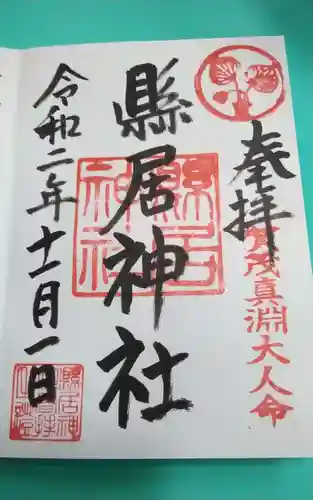 奉拝
賀茂真淵大人命
縣居神社
縣居神社
令和二年十一月一日